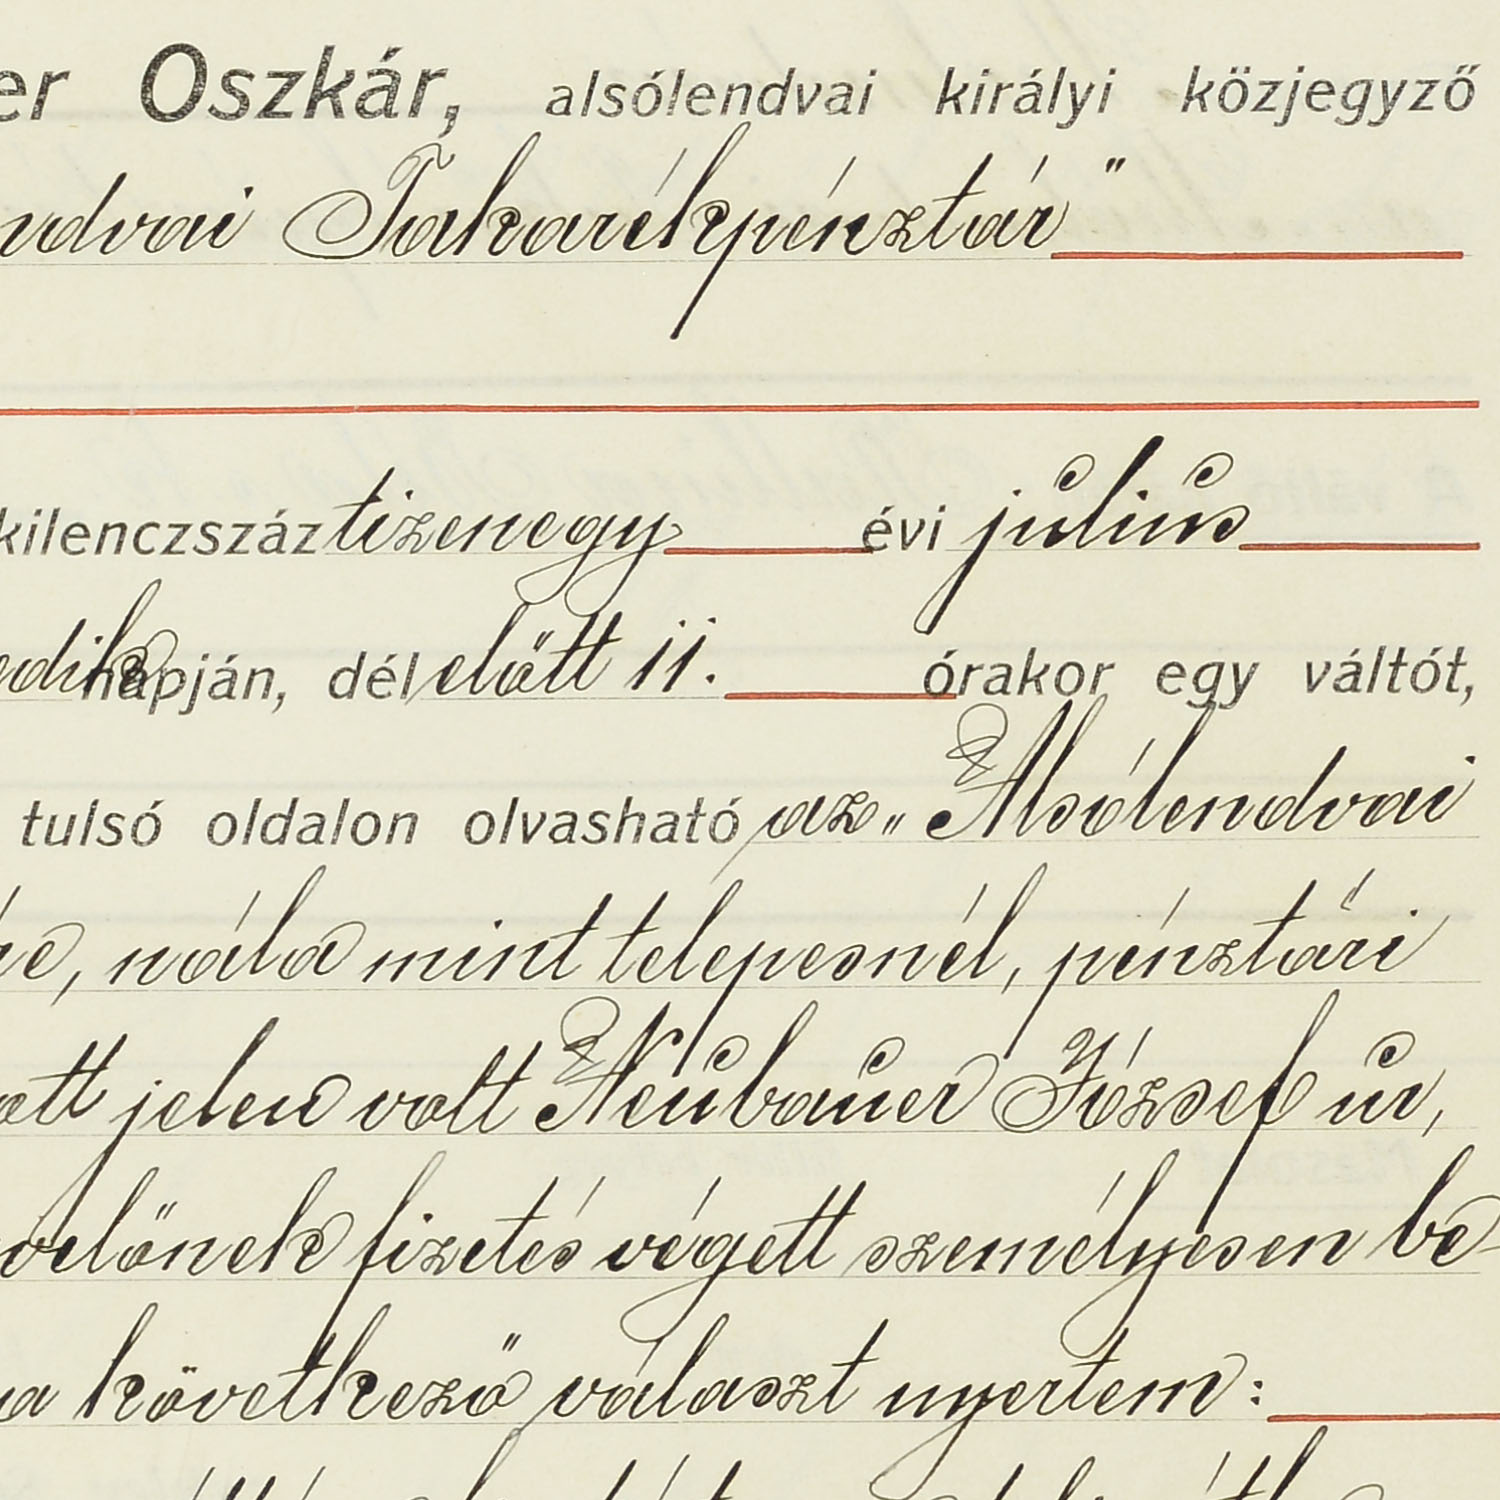 er Oszkár, alsólendvai királyi közjegyző
ndvai Takarékpénztár"
kilenczszáz tizenegy évi július
edik napján, dél előtt 11. órakor egy váltót,
tulsó oldalon olvasható az „Alsólendvai
re, nála mint telepesnél, pénztári
ott jelen volt Neubauer József úr,
velőnek fizetés végett személyesen be-
a következő választ nyertem: